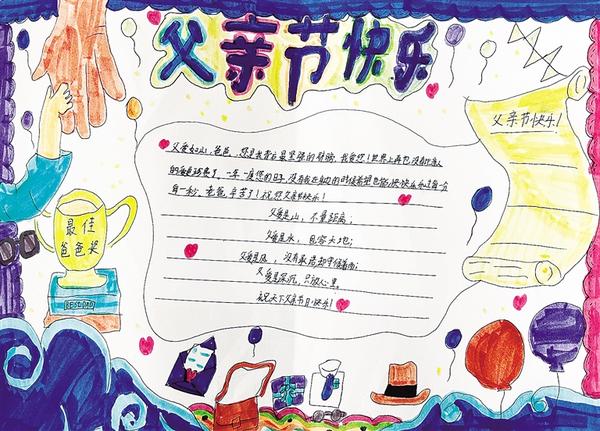 父亲节快乐
父亲节快乐!
父爱如山,爸爸,您是我背后最坚强的臂膀,我爱您!世界上再也没有
了。一年一度您的日子,没有我在身边的时候希望您能快快乐乐过每一分
每一秒,爸爸辛苦了!祝您父亲节快乐!
父爱是山,不量距离;
父爱是水,包容大地;
父爱是,没有承诺却守候着你;
父爱是深沉,只放心里。
祝天下父亲节日快乐!
最佳
爸爸奖
BEST DAD